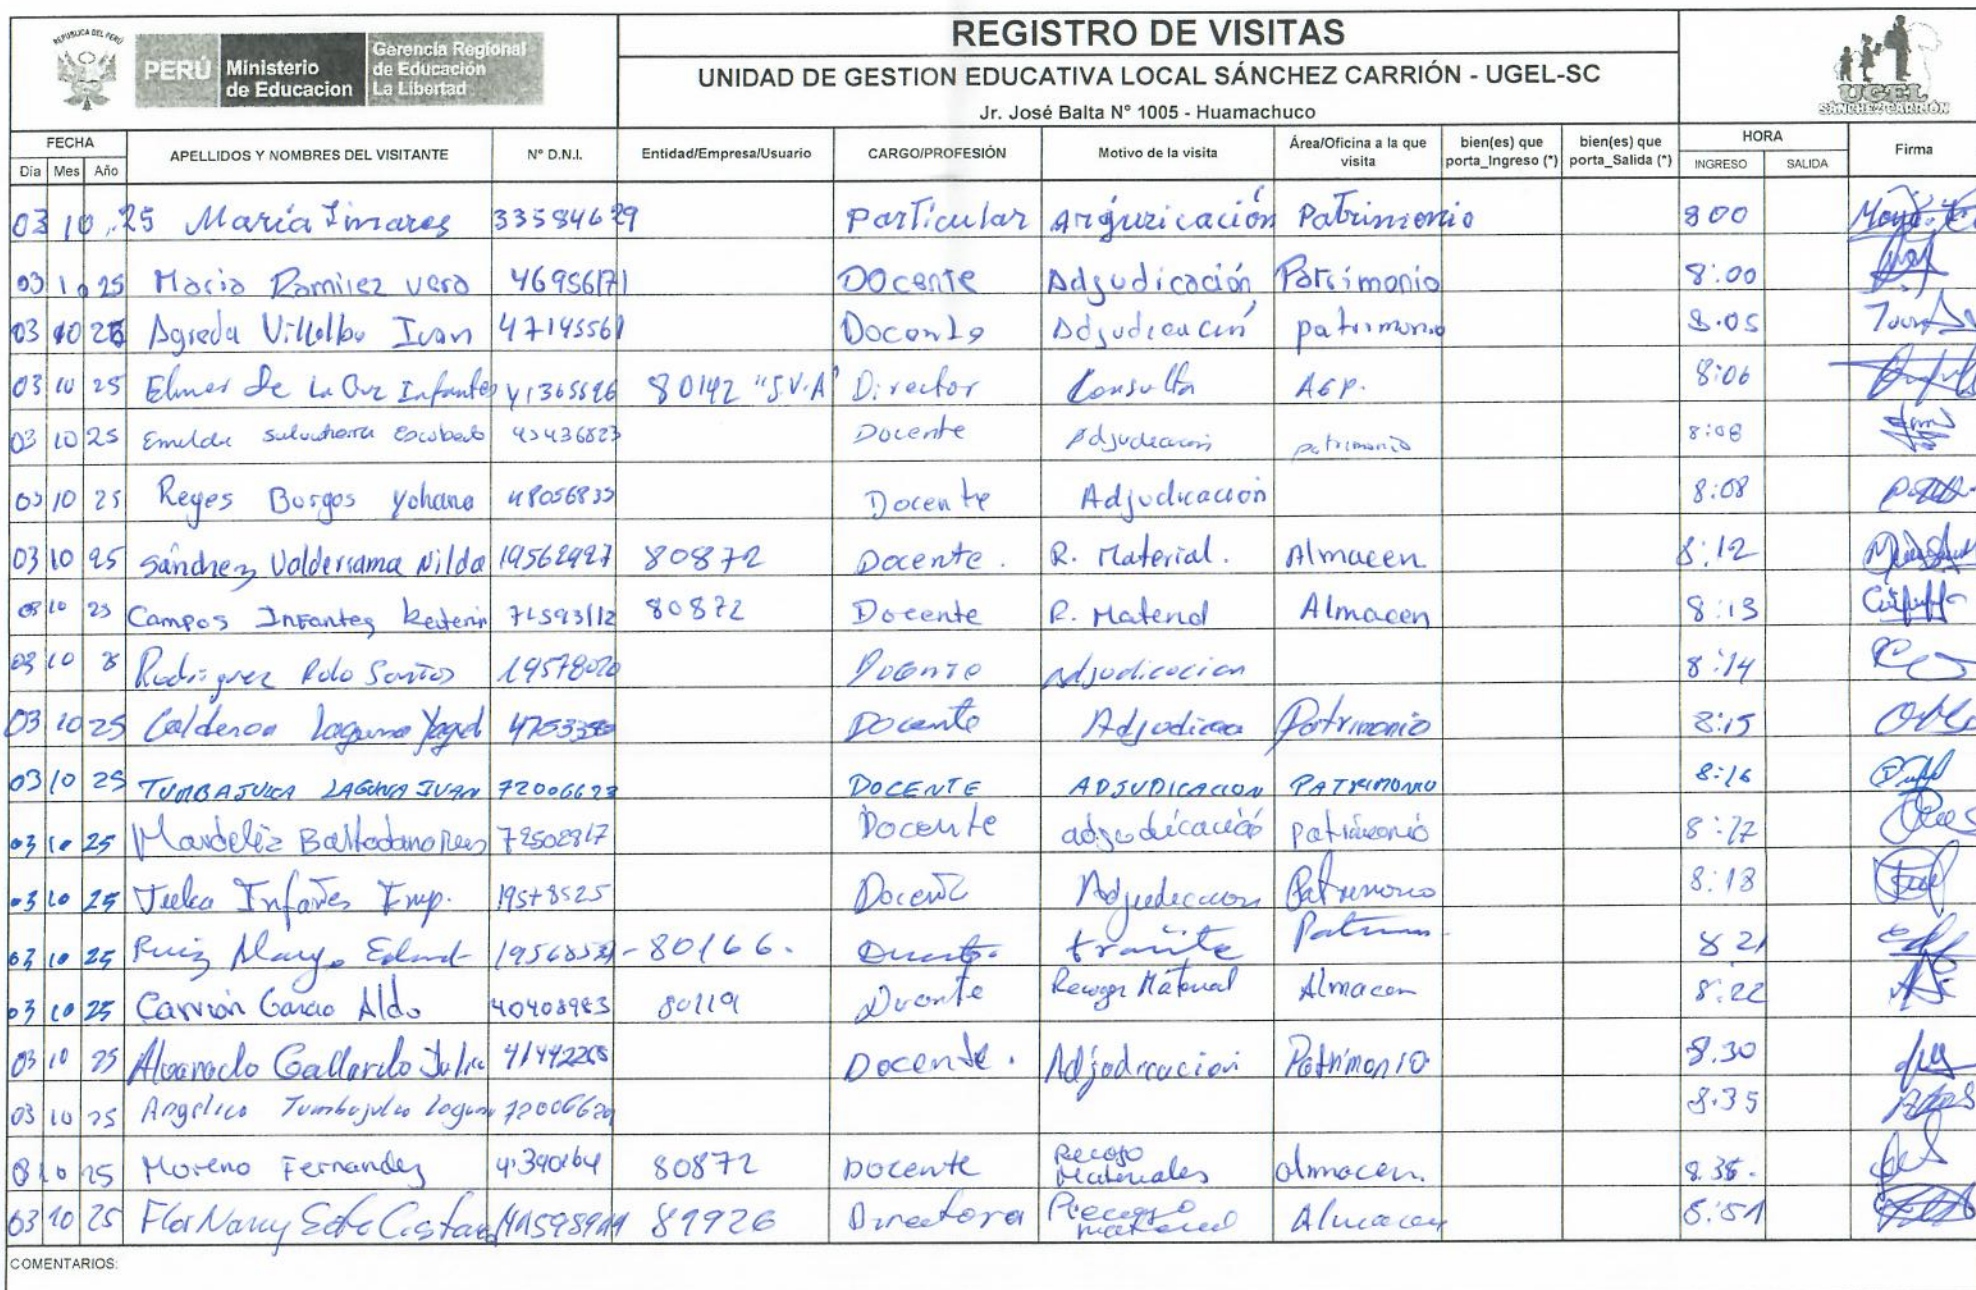 REPUBLICA DEL PERÚ
PERÚ Ministerio de Educacion Gerencia Regional de Educación La Libertad
REGISTRO DE VISITAS
UNIDAD DE GESTION EDUCATIVA LOCAL SÁNCHEZ CARRIÓN - UGEL-SC
Jr. José Balta N° 1005 - Huamachuco
UGEL
SÁNCHEZ CARRIÓN
FECHA APELLIDOS Y NOMBRES DEL VISITANTE N° D.N.I. Entidad/Empresa/Usuario CARGO/PROFESIÓN Motivo de la visita Área/Oficina a la que visita bien(es) que porta_Ingreso (*) bien(es) que porta_Salida (*) HORA Firma
Día Mes Año INGRESO SALIDA
03 10 25 María Linares 33584679 Particular Patrimonio 800
03 10 25 Maria Ramirez Vera 46956171 Docente Adjudicación Patrimonio 8:00
03 10 25 Agreda Villalba Ivan 47145561 Docente Adjudicación patrimonio 8.05
03 10 25 Elmer De La Cruz Infantes 41365526 80142 "J.V.A" Director Consulta AGP. 8:06
03 10 25 Docente Adjudicacion patrimonio 8:08
03 10 25 Reyes Burgos Yohana 48056835 Docente Adjudicación 8:08
03 10 25 Sánchez Valderrama Nilda 19562927 80872 Docente. R. Material. Almacen 8:12
03 10 25 Campos Infantes 71593112 80872 Docente R. Material Almacen 8:13
03 10 Rodriguez Polo Santos 19578020 Docente adjudicacion 8:14
03 10 25 Calderon Laguna Docente Adjudica Patrimonio 8:15
03 10 25 TUMBAJULCA LAGUNA IVAN 72006623 DOCENTE ADJUDICACION PATRIMONIO 8:16
03 10 25 Baltodano 72502817 Docente adjudicación patrimonio 8:17
03 10 25 Julca Infantes Emp. 19578525 Docente Adjudicacion Patrimonio 8:18
03 10 25 Ruiz - 80166. tramite 8 21
03 10 25 Carrión Garcia Aldo 40408983 80119 Docente Recoger Material Almacen 8:22
03 10 25 Alvarado Gallardo Julia 41442265 Docente. Adjudicacion Patrimonio 8.30
03 10 25 Angelica Tumbajulca Laguna 72006620 8.35
03 10 25 Moreno Fernandez 80872 Docente Recojo Materiales almacen. 8.38.
03 10 25 Flor Nancy 81926 Directora Recojo material Almacen 8:51
COMENTARIOS: